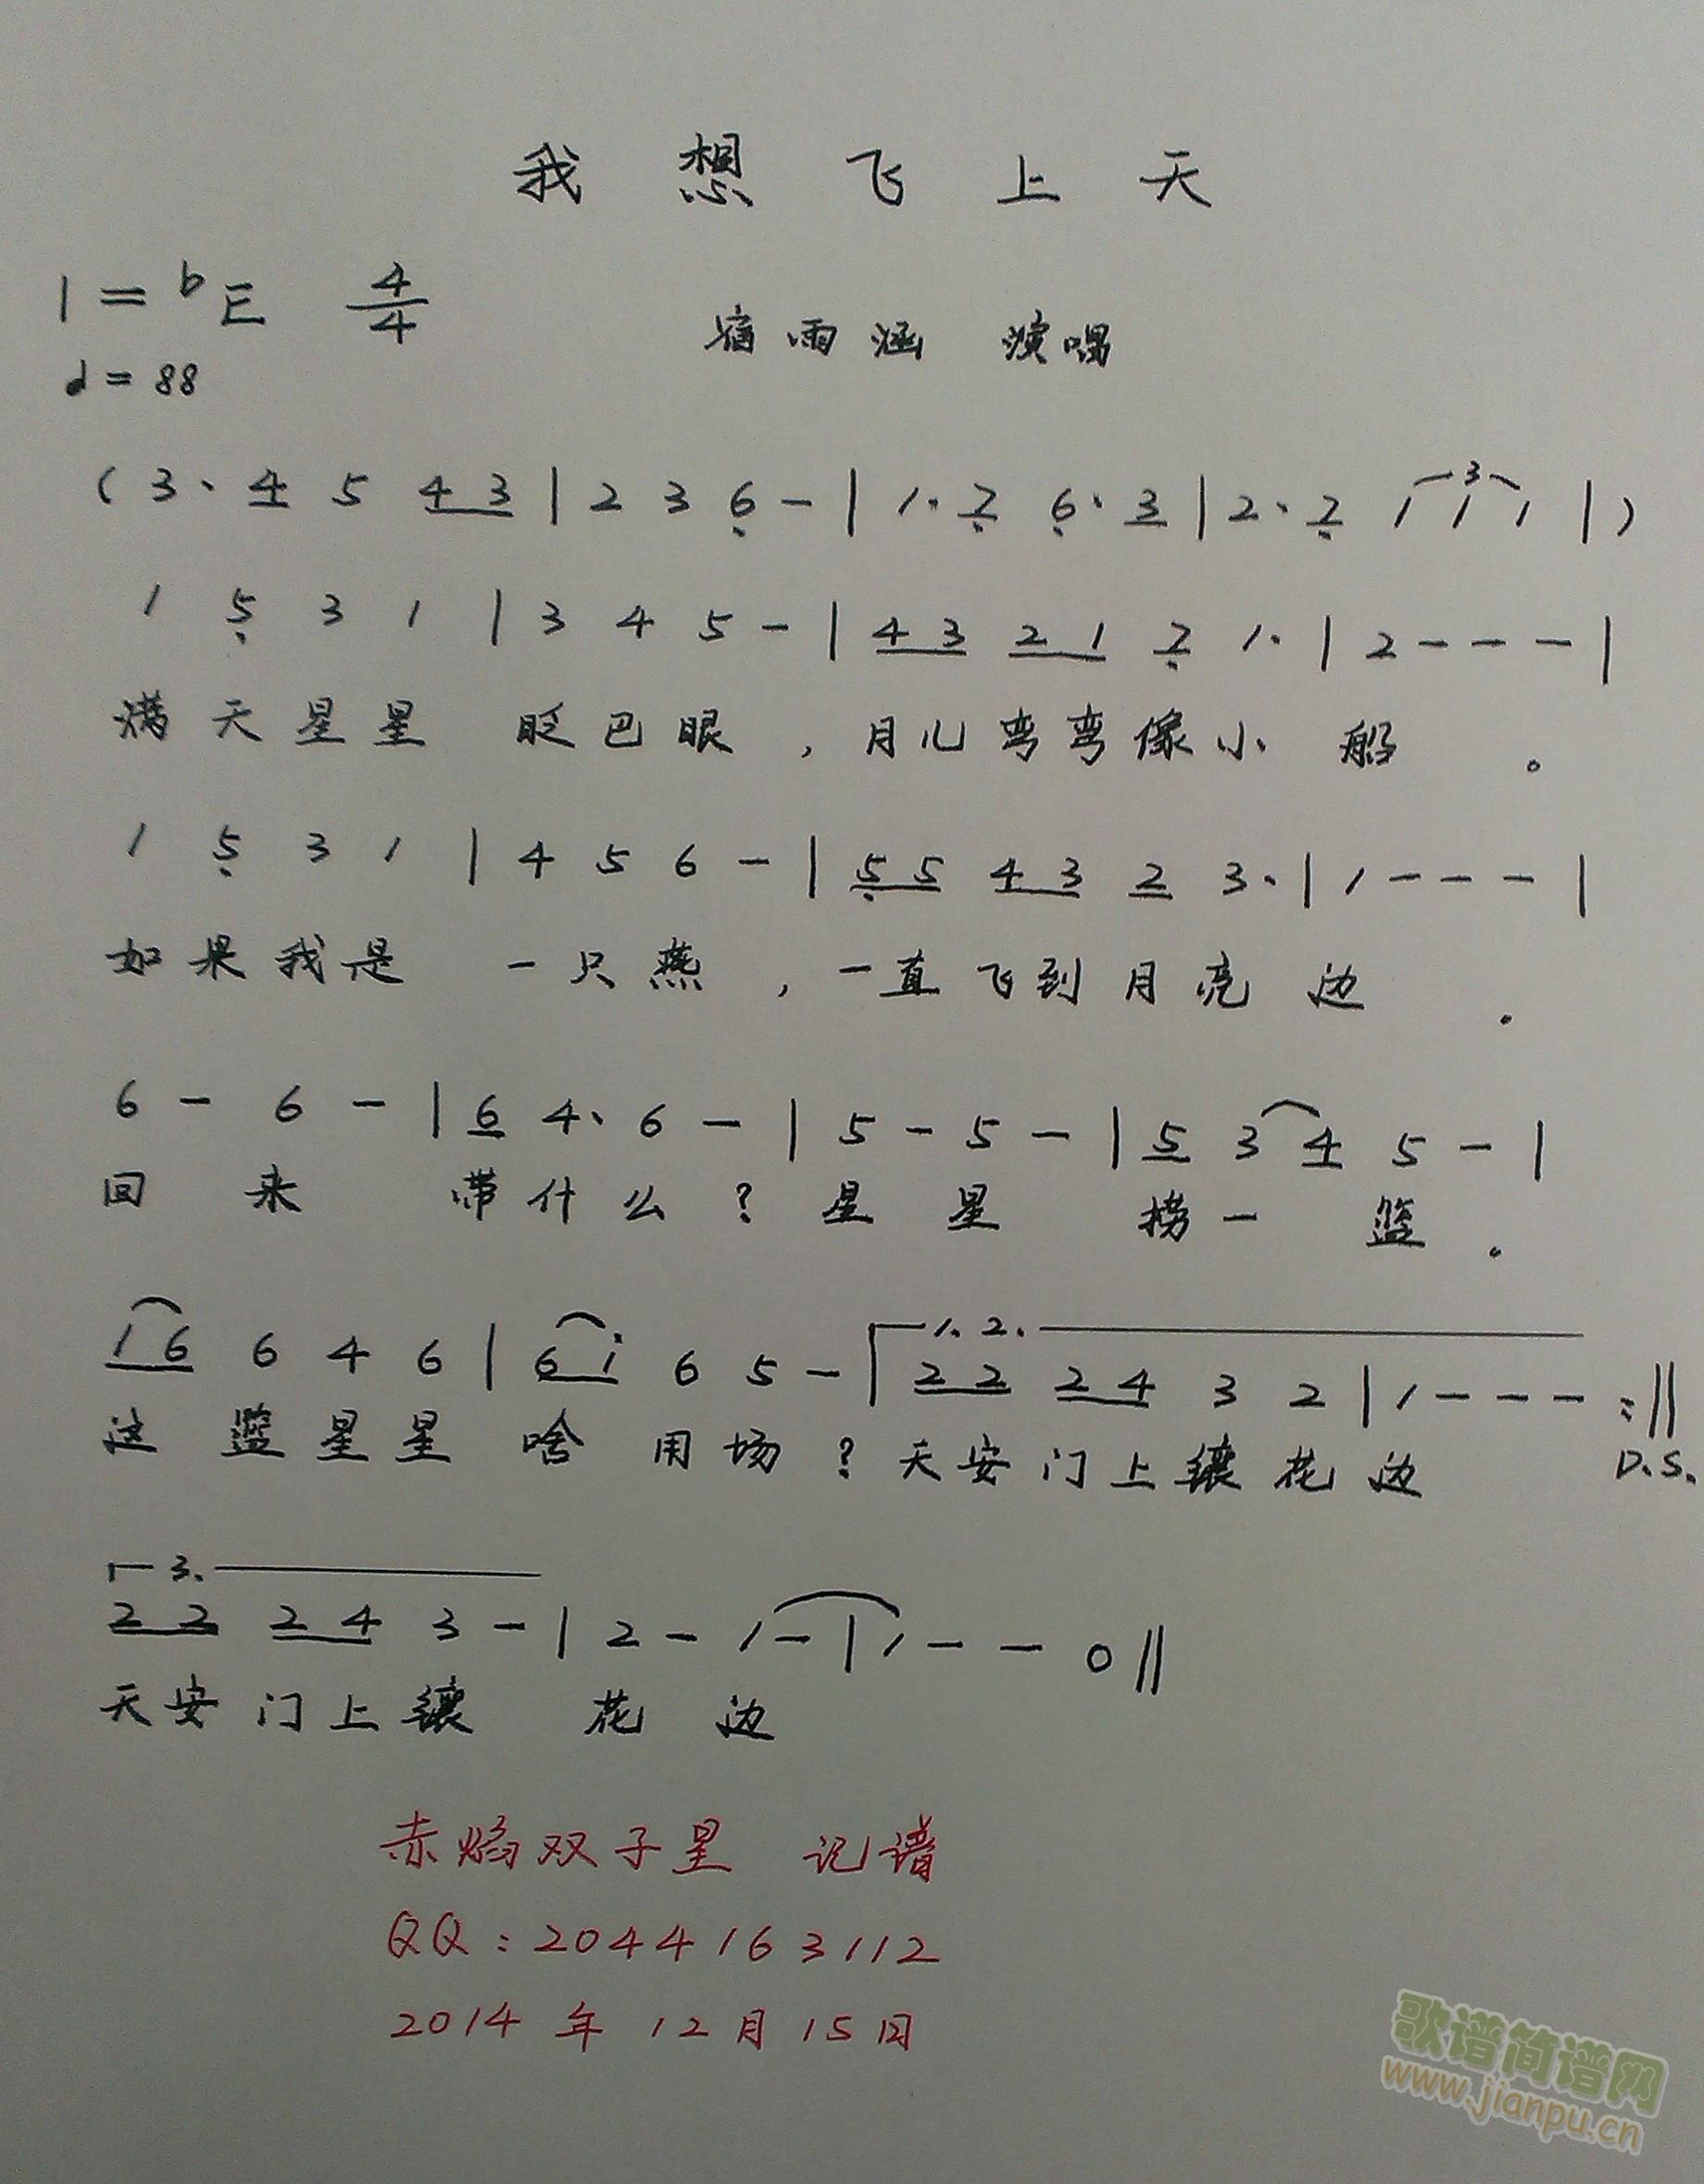 我想飞上天
1=bE 4/4
宿雨涵 演唱
♩=88
(3· 4 5 4 3 | 2 3 6 - | 1· 7 6· 3 | 2· 7 1 1 1 |)
3
1 5 3 1 | 3 4 5 - | 4 3 2 1 7 1· | 2 - - - |
满天星星 眨巴眼，月儿弯弯像小船。
1 5 3 1 | 4 5 6 - | 5 5 4 3 2 3· | 1 - - - |
如果我是 一只燕，一直飞到月亮边.
6 - 6 - | 6 4· 6 - | 5 - 5 - | 5 3 4 5 - |
回来 带什么？星星 捞一篮.
1.2.
1 6 6 4 6 | 6 i 6 5 - | 2 2 2 4 3 2 | 1 - - - :||
这篮星星啥用场？天安门上镶花边 D.S.
3.
2 2 2 4 3 - | 2 - 1 - | 1 - - 0 ||
天安门上镶 花边
赤焰双子星 记谱
QQ：2044163112
2014年12月15日
歌谱简谱网
www.jianpu.cn